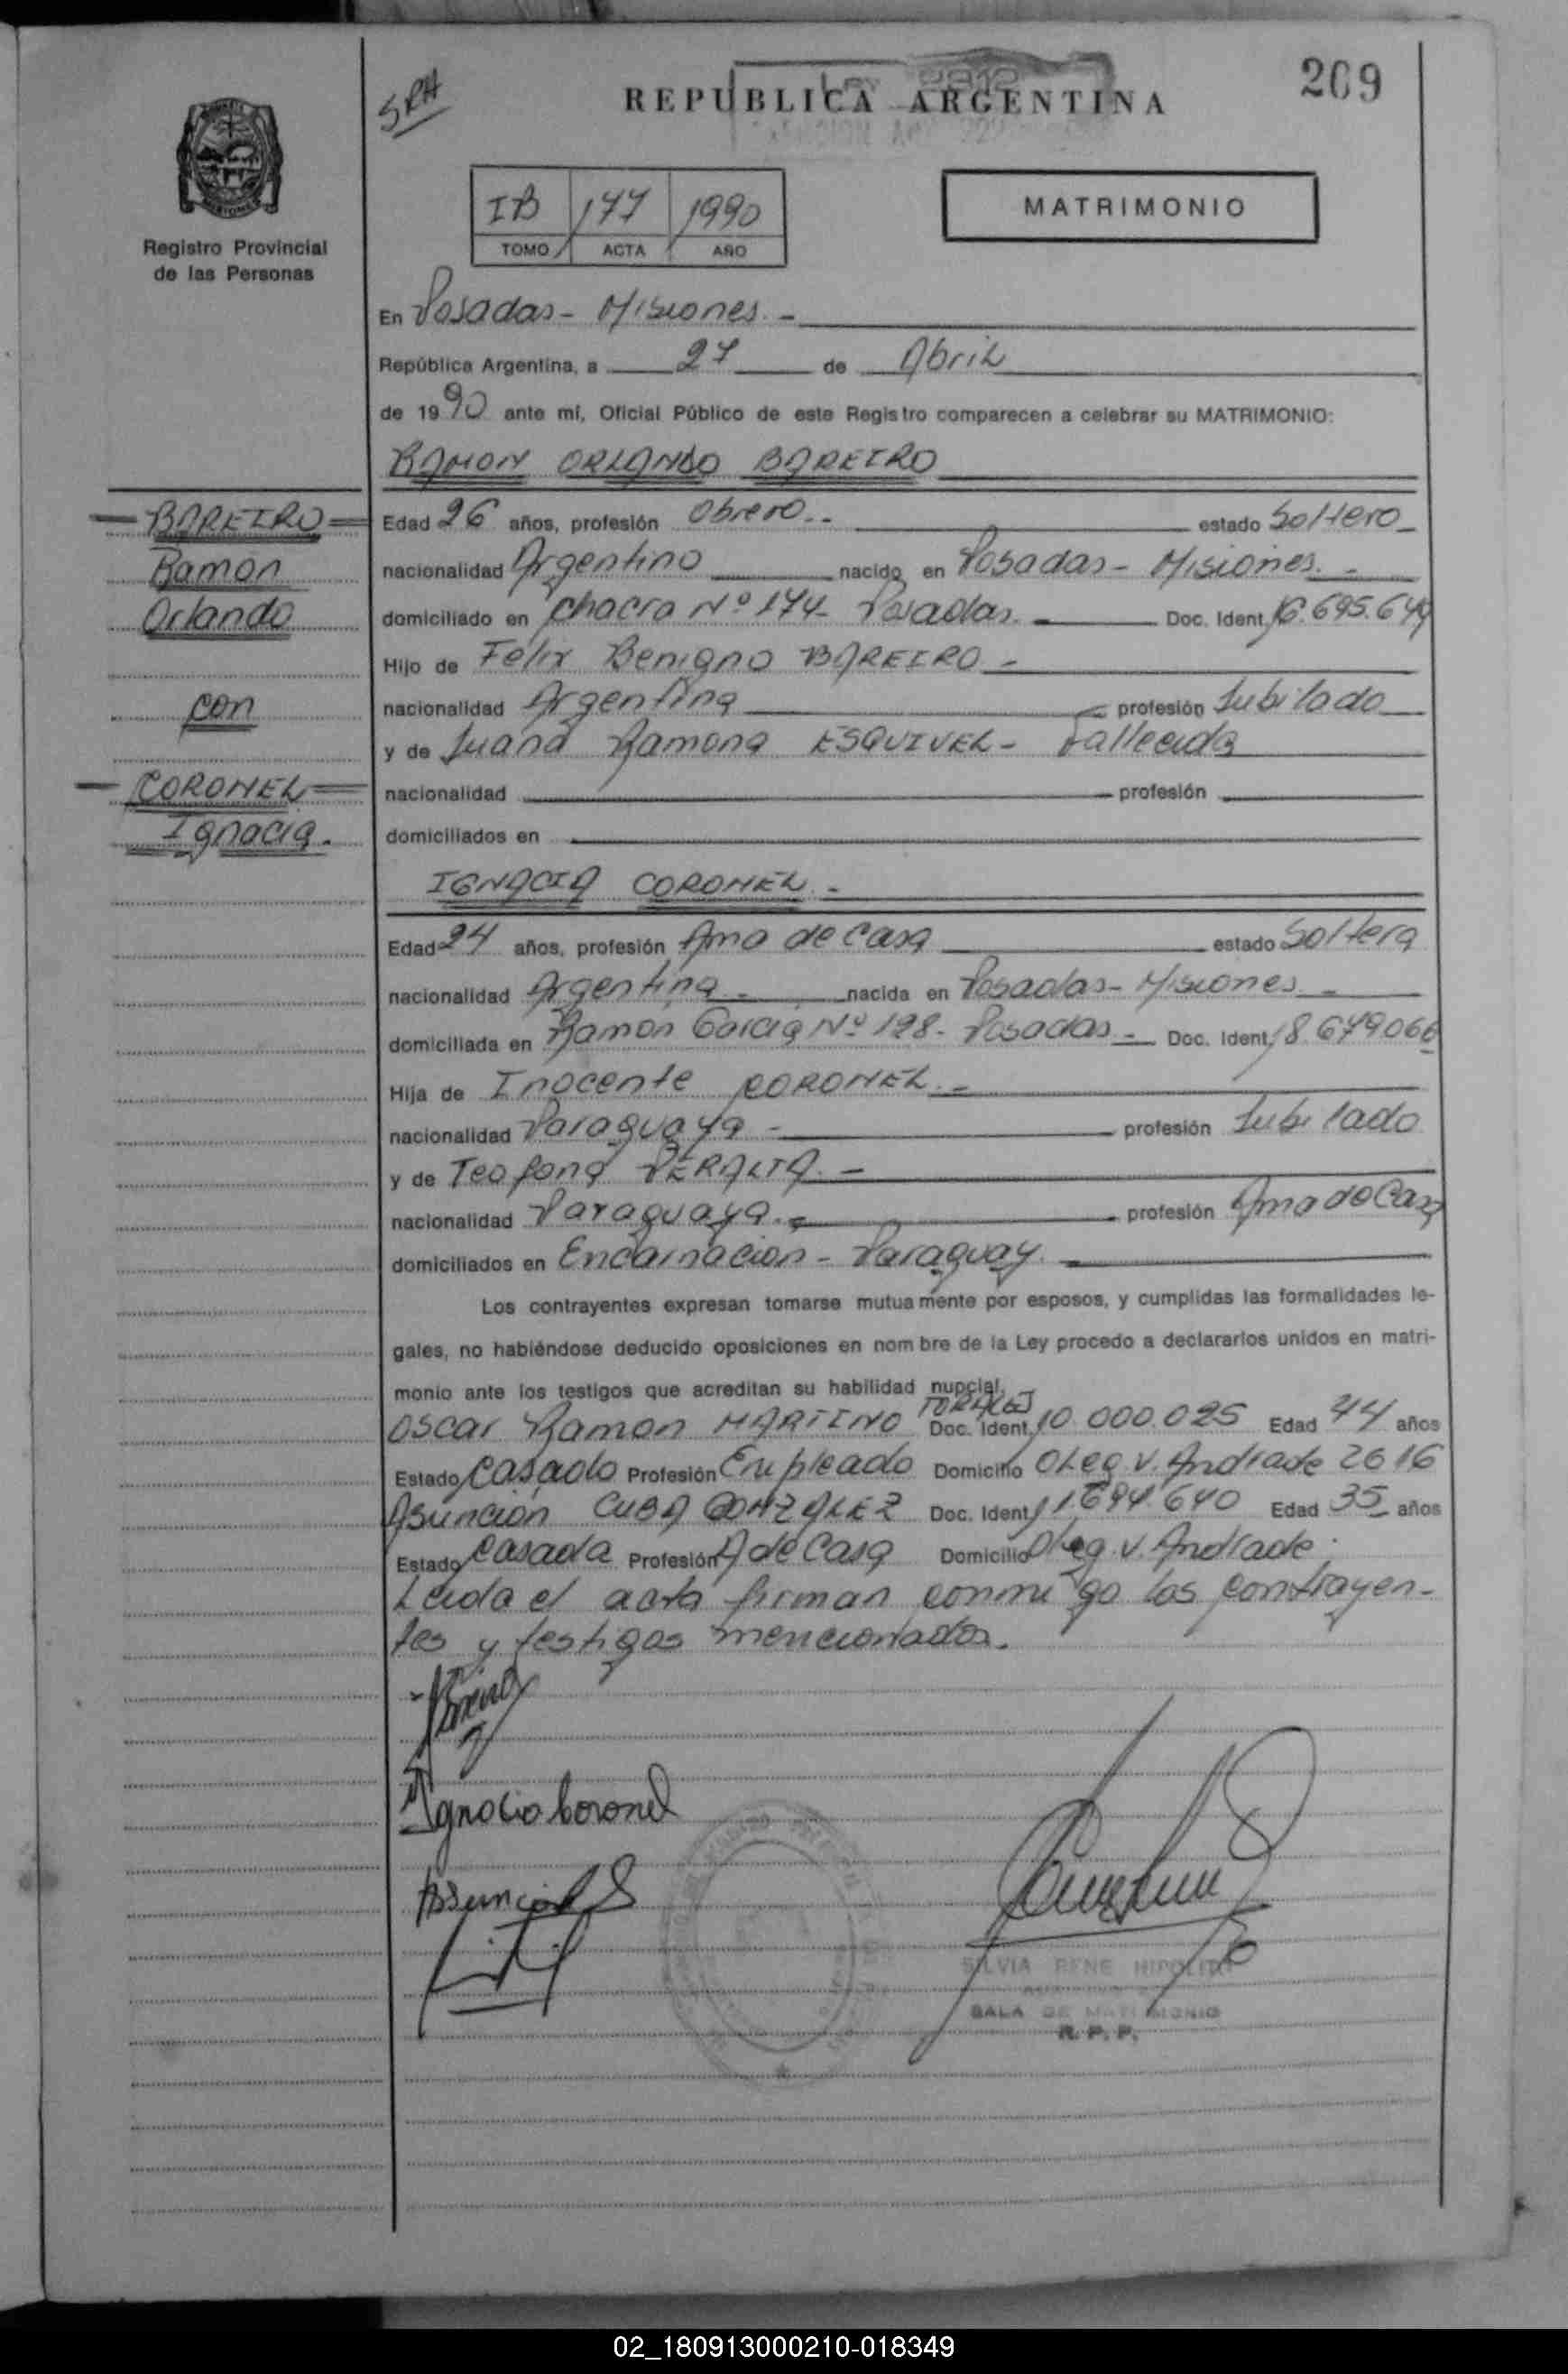 269
SRH
REPUBLICA ARGENTINA
Registro Provincial
de las Personas
IB 177 1990
TOMO ACTA AÑO
MATRIMONIO
En Posadas - Misiones -
República Argentina, a 27 de Abril
de 1990 ante mí, Oficial Público de este Registro comparecen a celebrar su MATRIMONIO:
RAMON ORLANDO BAREIRO
BAREIRO
Ramon
Orlando
con
CORONEL
Ignacia.
Edad 26 años, profesión Obrero.. estado Soltero
nacionalidad Argentino nacido en Posadas - Misiones. -
domiciliado en chacra Nº 174 - Posadas. Doc. Ident. 16.695.649
Hijo de Felix Benigno BAREIRO -
nacionalidad Argentina profesión Jubilado
y de Juana Ramona ESQUIVEL - Fallecida
nacionalidad profesión
domiciliados en
IGNACIA CORONEL -
Edad 24 años, profesión Ama de Casa estado Soltera
nacionalidad Argentina - nacida en Posadas - Misiones -
domiciliada en Ramon Garcia Nº 198 - Posadas - Doc. Ident. 18.679066
Hija de Inocente CORONEL. -
nacionalidad Paraguaya - profesión Jubilado
y de Teofona PERALTA. -
nacionalidad Paraguaya. - profesión Ama de Casa
domiciliados en Encarnacion - Paraguay.
Los contrayentes expresan tomarse mutuamente por esposos, y cumplidas las formalidades le-
gales, no habiéndose deducido oposiciones en nombre de la Ley procedo a declararlos unidos en matri-
monio ante los testigos que acreditan su habilidad nupcial.
Oscar Ramon MARTINO Doc. Ident. 10.000.025 Edad 44 años
Estado Casado Profesión Empleado Domicilio Oleg. V. Andrade 2616
Asuncion CUBA GONZALEZ Doc. Ident. 11.694.640 Edad 35 años
Estado Casada Profesión A de Casa Domicilio Oleg. V. Andrade.
Leida el acta firman conmigo los contrayen-
tes y testigos mencionados.
Ignacia Coronel
Asuncion
SILVIA RENE HIPOLITO
SALA DE MATRIMONIO
R. P. P.
02_180913000210-018349